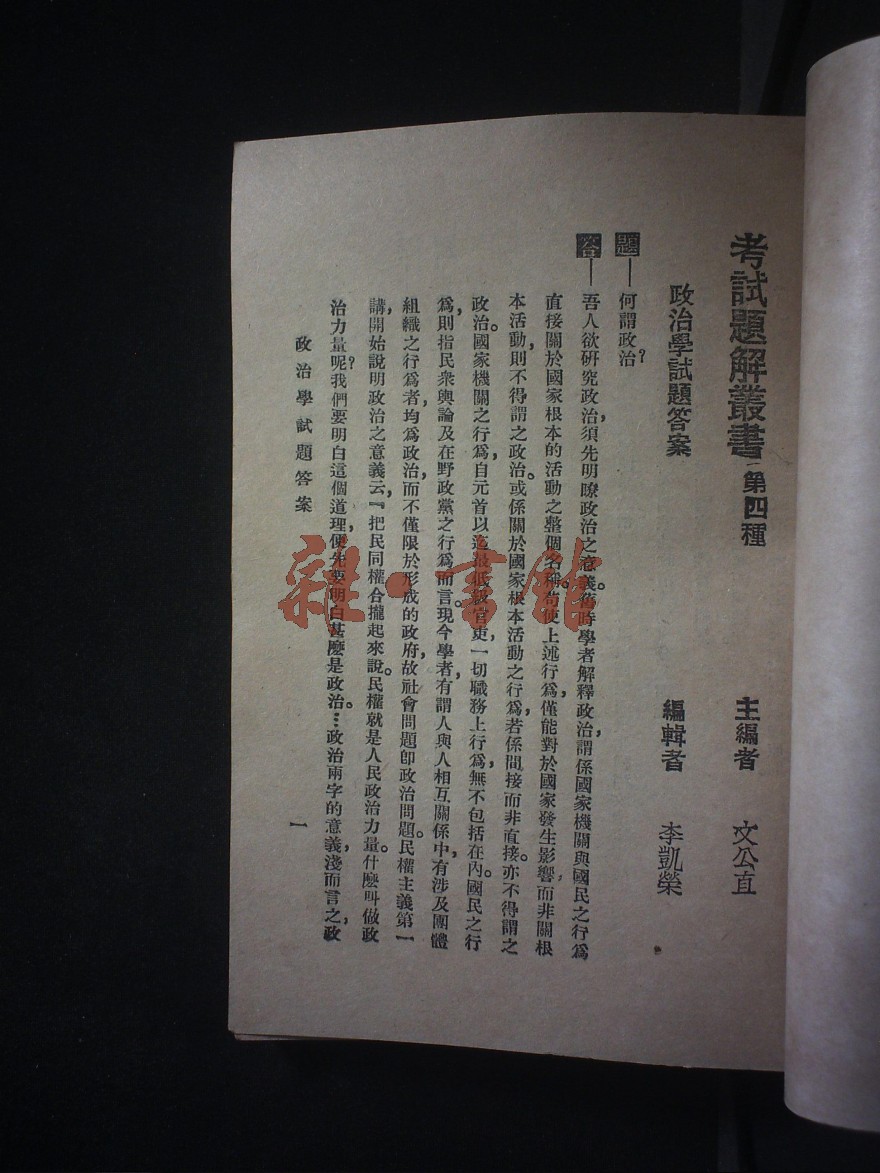 考試題解叢書 第四種
主編者 文公直
政治學試題答案
編輯者 李凱榮
題——何謂政治?
答——吾人欲硏究政治,須先明瞭政治之意義。舊時學者解釋政治,謂係國家機關與國民之行爲
直接關於國家根本的活動之整個名稱。苟使上述行爲,僅能對於國家發生影響而非關根
本活動,則不得謂之政治。或係關於國家根本活動之行爲,若係間接而非直接。亦不得謂之
政治。國家機關之行爲,自元首以迄最低級官吏,一切職務上行爲,無不包括在內。國民之行
爲,則指民衆輿論及在野政黨之行爲而言。現今學者,有謂人與人相互關係中,有涉及團體
組織之行爲者,均爲政治,而不僅限於形成的政府,故社會問題卽政治問題。民權主義第一
講,開始說明政治之意義云,『把民同權合攏起來說。民權就是人民政治力量。什麼叫做政
治力量呢?我們要明白這個道理,便先要明白甚麼是政治。…政治兩字的意義,淺而言之,政
政治學試題答案
一
雜·書館